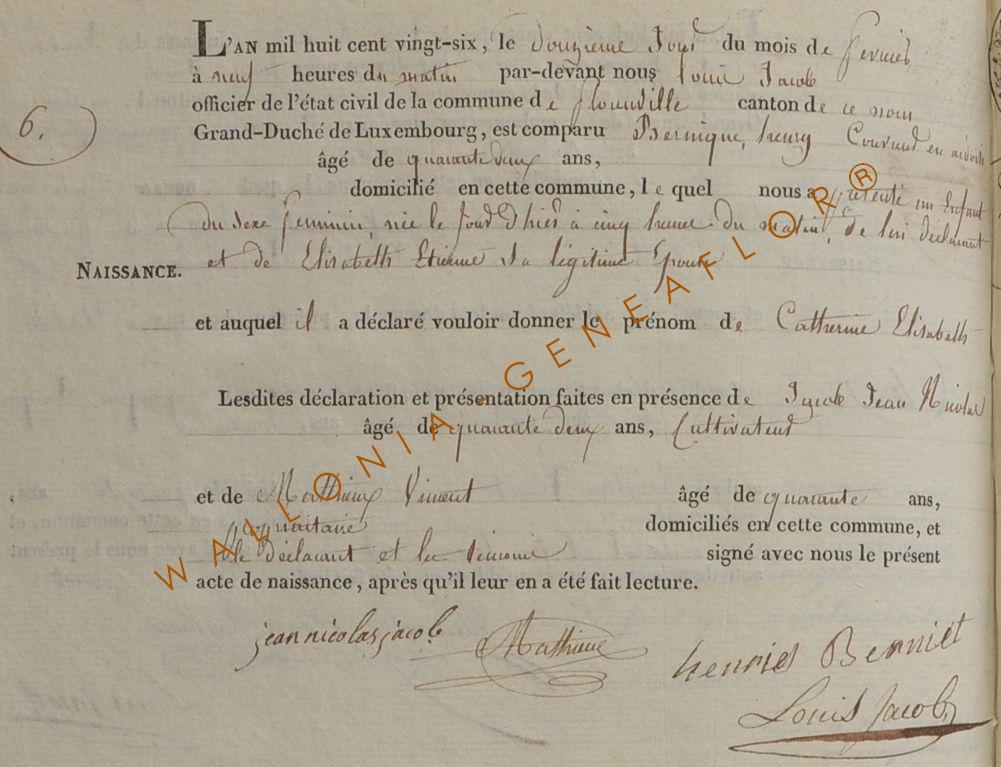 L'AN mil huit cent vingt-six, le Douzieme Jour du mois de fevrier
à neuf heures du matin par-devant nous Louis Jacob
officier de l'état civil de la commune de flor​enville canton de ce nom
6.
Grand-Duché de Luxembourg, est comparu henry Couvreur en
âgé de quarante deux ans,
domicilié en cette commune, le quel nous a présenté un Enfant
du sexe feminin, née le Jour d'hier à cinq heures du matin, de lui déclarant
NAISSANCE.
et de Elisabeth Etienne Sa légitime Epouse
et auquel il a déclaré vouloir donner le prénom de Catherine Elisabeth
Lesdites déclaration et présentation faites en présence de Jacob Jean Nicolas
âgé de quarante deux ans, Cultivateur
et de Mathieux Vincent âgé de quarante ans,
domiciliés en cette commune, et
le déclarant et les temoins signé avec nous le présent
acte de naissance, après qu'il leur en a été fait lecture.
jean nicolas jacob Mathieu
henrie Berniet
Louis Jacob
WALLONIA - GENEAFLOR®